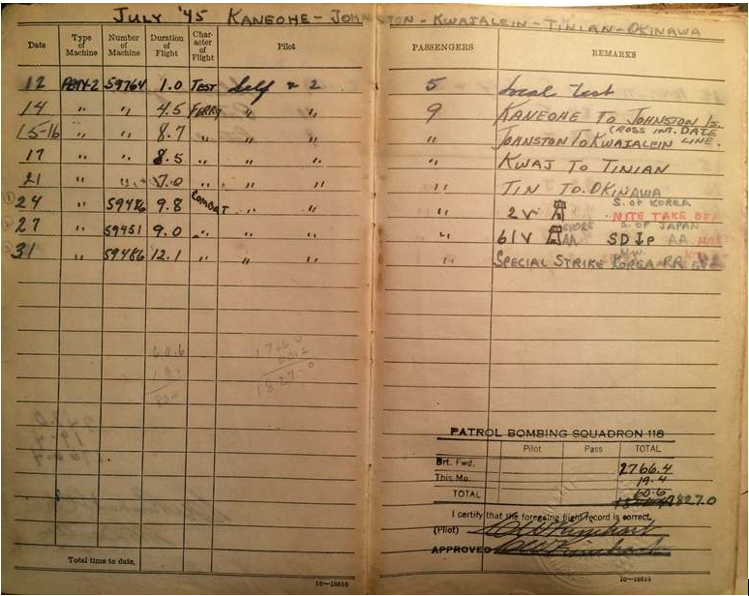 JULY '45 KANEOHE - JOHNSTON - KWAJALEIN - TINIAN - OKINAWA
Date Type of Machine Number of Machine Duration of Flight Character of Flight Pilot PASSENGERS REMARKS
12 PB4Y-2 59764 1.0 TEST Self & 2 5 Local Test
14 " " 4.5 FERRY " " 9 KANEOHE TO JOHNSTON Is.
(CROSS INT. DATE LINE.
15-16 " " 8.7 " " " " JOHNSTON TO KWAJALEIN
17 " " 8.5 " " " " KWAJ TO TINIAN
21 " " 7.0 " " " " TIN TO OKINAWA
① 24 " 59486 9.8 COMBAT " " " 2V S. OF KOREA
NITE TAKE OFF
② 27 " 59451 9.0 " " " " 61V SHORE AA SD Jp AA S. OF JAPAN
③ 31 " 59486 12.1 " " " " SPECIAL STRIKE N.W. KOREA RR
60.6
1766.4
60.6
1827.0
PATROL BOMBING SQUADRON 118
Pilot Pass TOTAL
Brt. Fwd. 2766.4
This Mo. 19.4
60.6
TOTAL 1827.0
I certify that the foregoing flight record is correct.
(Pilot)
APPROVED
Total time to date.
16—18618 16—18618